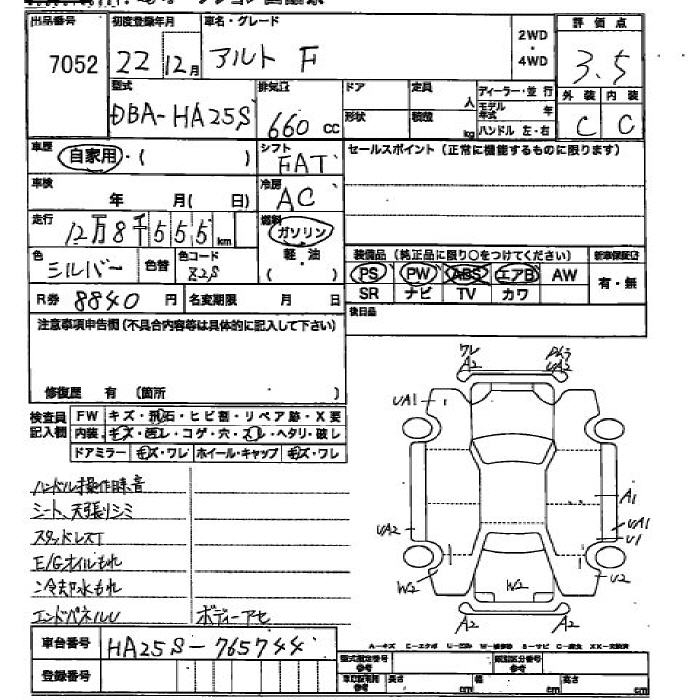 出品番号 初度登録年月 車名・グレード 評価点
7052 22 12月 アルト F 2WD・4WD 3.5
型式 排気量 ドア 定員 人 ディーラー・並行 外装 内装
DBA-HA25S 660 cc 形状 積載 kg モデル年式 年 ハンドル 左・右 C C
車歴 自家用・( ) シフト FAT セールスポイント(正常に機能するものに限ります)
車検 年 月( 日) 冷房 AC
走行 12万8千555km 燃料 ガソリン 軽油 ( )
色 シルバー 色替 色コード Z2S
装備品(純正品に限り○をつけてください) 新車保証書
PS PW ABS エアB AW 有・無
SR ナビ TV カワ
R券 8840円 名変期限 月 日 後日品
注意事項申告欄(不具合内容等は具体的に記入して下さい)
修復歴 有 (箇所 )
検査員記入欄 FW キズ・飛石・ヒビ割・リペア跡・X要
内装 キズ・汚レ・コゲ・穴・スレ・ヘタリ・破レ
ドアミラー キズ・ワレ ホイール・キャップ キズ・ワレ
ハンドル操作時音
シート、天張りシミ
スタッドレスT
E/Gオイルもれ
冷却水もれ
エンドパネルU ボディーアセ
ワレ A2 UA2
UA1
A1
UA2 UA1
U1
W2 W2 U2
A2 A2
車台番号 HA25S-765744
登録番号
A-キズ E-エクボ U-凹み W-補修跡 S-サビ C-腐食 XX-交換済
型式指定番号 参考 類別区分番号 参考
車両証明用 参考 長さ cm 幅 cm 高さ cm